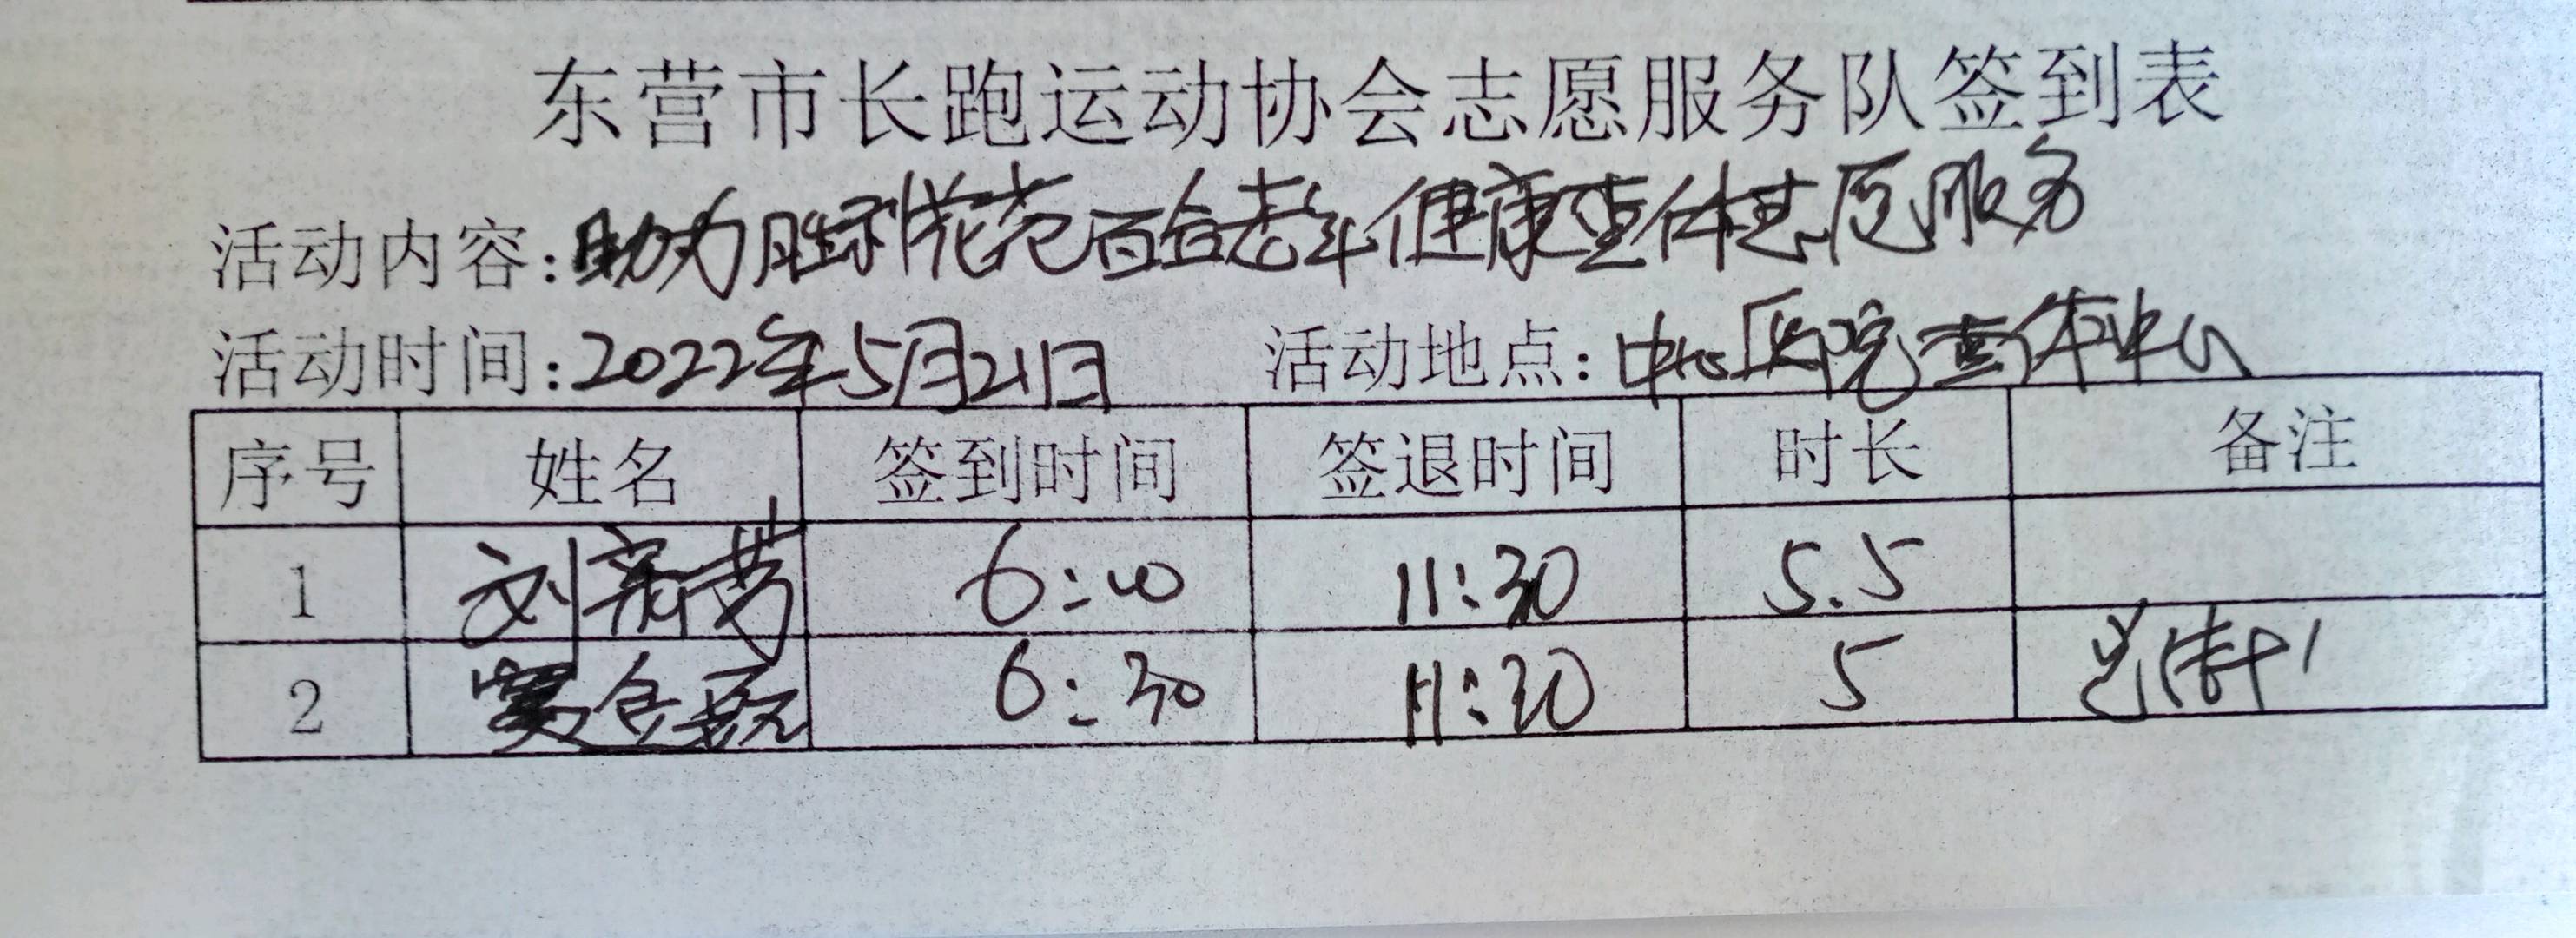 东营市长跑运动协会志愿服务队签到表
活动内容:助力胜利花苑百合老年健康查体志愿服务
活动时间:2022年5月21日 活动地点:中心医院查体中心
序号 姓名 签到时间 签退时间 时长 备注
1 刘 6:00 11:30 5.5
2 窦 6:30 11:30 5